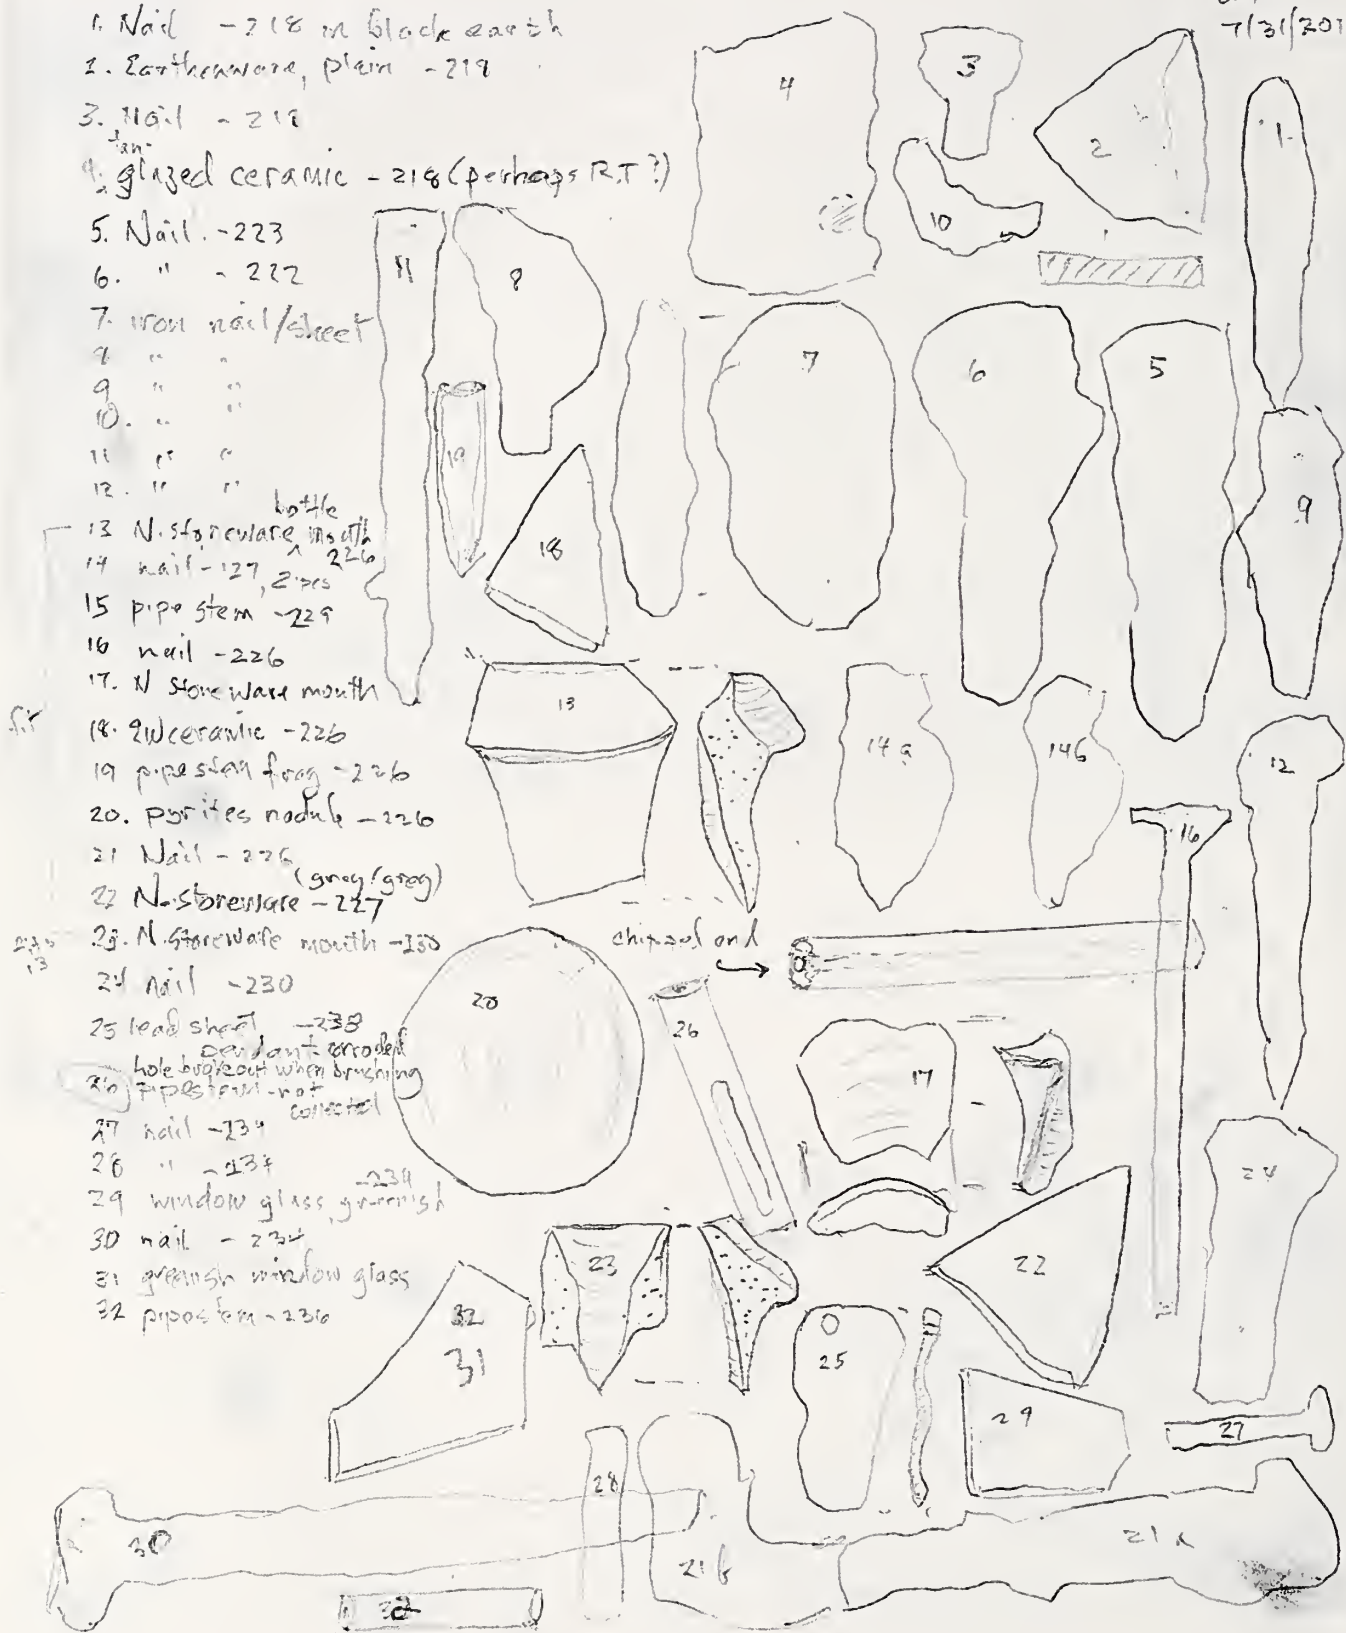 7/31/201
1. Nail - 218 in black earth
2. Earthenware, plain - 219
3. Nail - 219
tan
4. glazed ceramic - 218 (perhaps R.T?)
5. Nail. - 223
6. " - 222
7. iron nail/sheet
8 " "
9 " "
10. " "
11 " "
12. " "
bottle
13 N. stoneware ^ mouth
226
14 nail - 127, 2 pcs
15 pipe stem - 229
16 nail - 226
17. N stoneware mouth
fit
18. ceramic - 226
19 pipestem frag - 226
20. pyrites nodule - 226
21 Nail - 226
(gray/grey)
22 N. stoneware - 227
23. N. Stoneware mouth - 230
13
24 nail - 230
25 lead sheet - 238
pendant corroded
hole broke out when brushing
26 pipestem - not
collected
27 nail - 234
28 " - 234
- 234
29 window glass, greenish
30 nail - 234
31 greenish window glass
32 pipestem - 236
4
3
2
1
10
11
8
7
6
5
9
19
18
13
14a
14b
12
16
chipped end
20
26
17
24
23
22
32
31
25
29
27
28
30
21b
21a
32